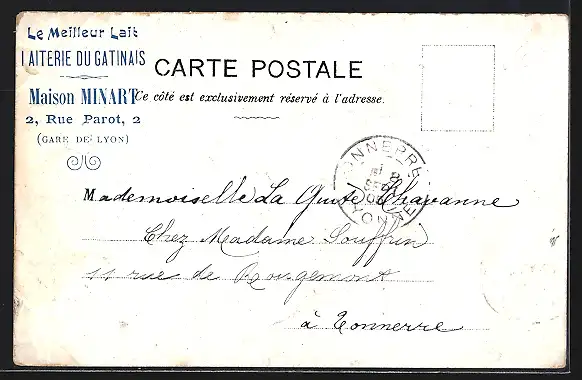 Le Meilleur Lait
LAITERIE DU GATINAIS
Maison MINART
2, Rue Parot, 2
(GARE DE LYON)
CARTE POSTALE
Ce côté est exclusivement réservé à l'adresse.
TONNERRE
8
SEPT
YONNE
Mademoiselle La Quinte Chavanne
Chez Madame Souffrin
11 rue de Rougemont
à Tonnerre